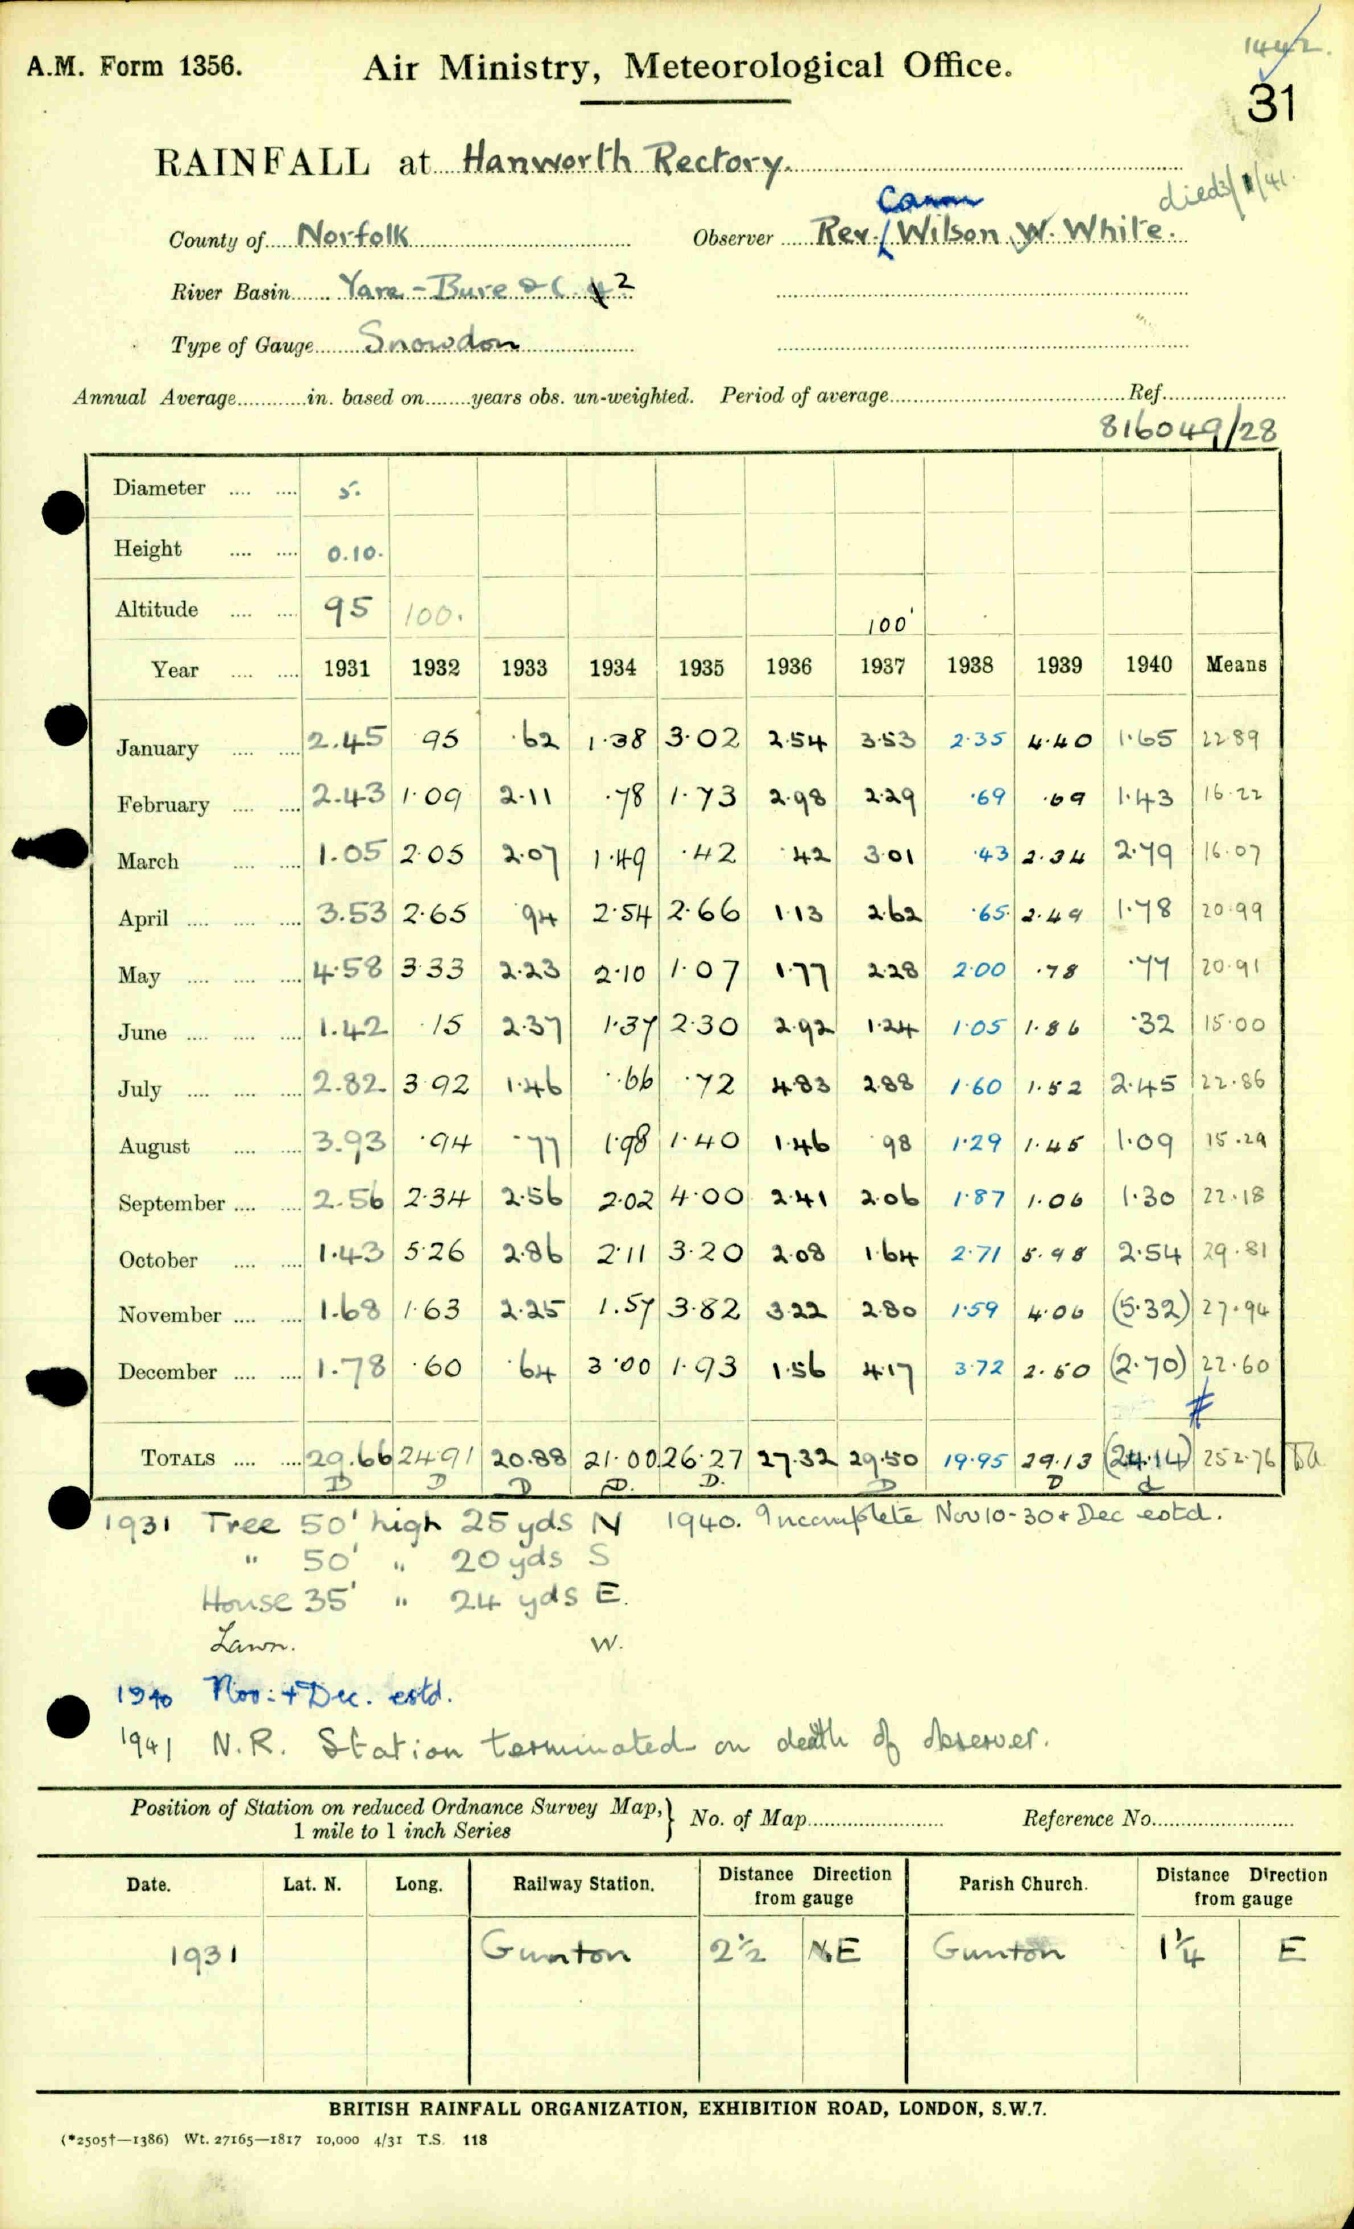 1442.
A.M. Form 1356. Air Ministry, Meteorological Office.
31
RAINFALL at Hanworth Rectory.
died 3/1/41.
Canon
County of Norfolk Observer Rev. Wilson W. White.
River Basin Yare - Bure &c. 2
Type of Gauge Snowdon
Annual Average in. based on years obs. un-weighted. Period of average Ref.
816049/28
Diameter 5.
Height 0.10.
Altitude 95 100. 100'
Year 1931 1932 1933 1934 1935 1936 1937 1938 1939 1940 Means
January 2.45 .95 .62 1.38 3.02 2.54 3.53 2.35 4.40 1.65 22.89
February 2.43 1.09 2.11 .78 1.73 2.98 2.29 .69 .69 1.43 16.22
March 1.05 2.05 2.07 1.49 .42 .42 3.01 .43 2.34 2.79 16.07
April 3.53 2.65 .94 2.54 2.66 1.13 2.62 .65 2.49 1.78 20.99
May 4.58 3.33 2.23 2.10 1.07 1.77 2.28 2.00 .78 .77 20.91
June 1.42 .15 2.37 1.37 2.30 2.92 1.24 1.05 1.86 .32 15.00
July 2.82 3.92 1.46 .66 .72 4.83 2.88 1.60 1.52 2.45 22.86
August 3.93 .94 .77 1.98 1.40 1.46 .98 1.29 1.45 1.09 15.29
September 2.56 2.34 2.56 2.02 4.00 2.41 2.06 1.87 1.06 1.30 22.18
October 1.43 5.26 2.86 2.11 3.20 2.08 1.64 2.71 5.98 2.54 29.81
November 1.68 1.63 2.25 1.57 3.82 3.22 2.80 1.59 4.06 (5.32) 27.94
December 1.78 .60 .64 3.00 1.93 1.56 4.17 3.72 2.50 (2.70) 22.60
#
TOTALS 29.66 24.91 20.88 21.00 26.27 27.32 29.50 19.95 29.13 (24.14) 252.76
D D D D. D. D D d
1931 Tree 50' high 25 yds N 1940. Incomplete Nov 10-30 & Dec estd.
" 50' " 20 yds S
House 35' " 24 yds E.
Lawn. W.
1940 Nov: + Dec. estd.
1941 N.R. Station terminated on death of observer.
Position of Station on reduced Ordnance Survey Map, } No. of Map Reference No.
1 mile to 1 inch Series
Date. Lat. N. Long. Railway Station. Distance Direction from gauge Parish Church. Distance Direction from gauge
1931 Gunton 2½ NE Gunton 1¼ E
BRITISH RAINFALL ORGANIZATION, EXHIBITION ROAD, LONDON, S.W.7.
(*2505†—1386) Wt. 27165—1817 10,000 4/31 T.S. 118